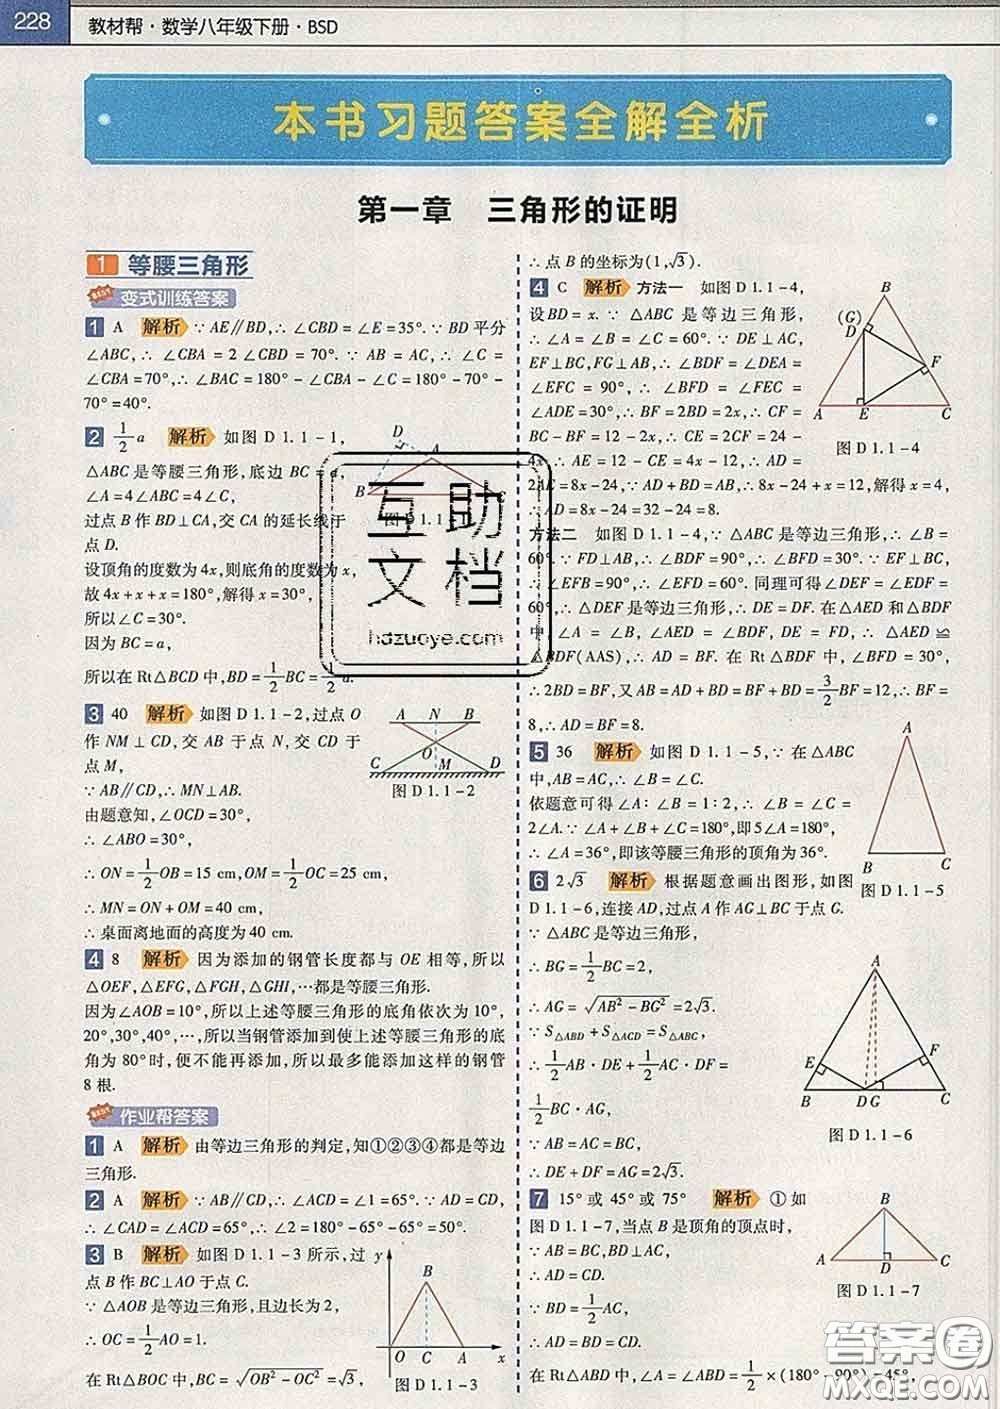 228 教材帮·数学八年级下册·BSD
本书习题答案全解全析
第一章 三角形的证明
1 等腰三角形
变式训练答案
1 A 解析 ∵AE∥BD,∴∠CBD=∠E=35°.∵BD平分
∠ABC,∴∠CBA=2∠CBD=70°.∵AB=AC,∴∠C=
∠CBA=70°,∴∠BAC=180°-∠CBA-∠C=180°-70°-
70°=40°.
2 1/2a 解析 如图D1.1-1,
△ABC是等腰三角形,底边BC=a,
∠A=4∠ABC=4∠C,
过点B作BD⊥CA,交CA的延长线于
点D.
设顶角的度数为4x,则底角的度数为x,
故4x+x+x=180°,解得x=30°,
所以∠C=30°.
因为BC=a,
所以在Rt△BCD中,BD=1/2BC=1/2a.
D
A
B
互助
文档
hdzuoye.com
3 40 解析 如图D1.1-2,过点O
作NM⊥CD,交AB于点N,交CD于
点M,
∵AB∥CD,∴MN⊥AB.
由题意知,∠OCD=30°,
∴∠ABO=30°,
∴ON=1/2OB=15 cm,OM=1/2OC=25 cm,
∴MN=ON+OM=40 cm,
∴桌面离地面的高度为40 cm.
A N B
O
C M D
图D1.1-2
4 8 解析 因为添加的钢管长度都与OE相等,所以
△OEF,△EFG,△FGH,△GHI,…都是等腰三角形.
因为∠AOB=10°,所以上述等腰三角形的底角依次为10°,
20°,30°,40°,…,所以当钢管添加到使上述等腰三角形的底
角为80°时,便不能再添加,所以最多能添加这样的钢管
8根.
作业帮答案
1 A 解析 由等边三角形的判定,知①②③④都是等边
三角形.
2 A 解析 ∵AB∥CD,∴∠ACD=∠1=65°.∵AD=CD,
∴∠CAD=∠ACD=65°,∴∠2=180°-65°-65°=50°.
3 B 解析 如图D1.1-3所示,过
点B作BC⊥AO于点C.
∵△AOB是等边三角形,且边长为2,
∴OC=1/2AO=1.
在Rt△BOC中,BC=√(OB²-OC²)=√3,
y
B
O C A x
图D1.1-3
∴点B的坐标为(1,√3).
4 C 解析 方法一 如图D1.1-4,
设BD=x.∵△ABC是等边三角形,
∴∠A=∠B=∠C=60°.∵DE⊥AC,
EF⊥BC,FG⊥AB,∴∠BDF=∠DEA=
∠EFC=90°,∴∠BFD=∠FEC=
∠ADE=30°,∴BF=2BD=2x,∴CF=
BC-BF=12-2x,∴CE=2CF=24-
4x,∴AE=12-CE=4x-12,∴AD=
2AE=8x-24,∵AD+BD=AB,∴8x-24+x=12,解得x=4,
∴AD=8x-24=32-24=8.
B
(G)
D
F
A E C
图D1.1-4
方法二 如图D1.1-4,∵△ABC是等边三角形,∴∠B=
60°.∵FD⊥AB,∴∠BDF=90°,∴∠BFD=30°.∵EF⊥BC,
∴∠EFB=90°,∴∠EFD=60°.同理可得∠DEF=∠EDF=
60°,∴△DEF是等边三角形,∴DE=DF.在△AED和△BDF
中,∠A=∠B,∠AED=∠BDF,DE=FD,∴△AED≌
△BDF(AAS),∴AD=BF.在Rt△BDF中,∠BFD=30°,
∴2BD=BF,又AB=AD+BD=BF+BD=3/2BF=12,∴BF=
8,∴AD=BF=8.
5 36 解析 如图D1.1-5,∵在△ABC
中,AB=AC,∴∠B=∠C.
依题意可得∠A:∠B=1:2,∴∠B=∠C=
2∠A.∵∠A+∠B+∠C=180°,即5∠A=180°,
∴∠A=36°,即该等腰三角形的顶角为36°.
A
B C
图D1.1-5
6 2√3 解析 根据题意画出图形,如图
D1.1-6,连接AD,过点A作AG⊥BC于点G.
∵△ABC是等边三角形,
∴BG=1/2BC=2,
∴AG=√(AB²-BG²)=2√3.
∵S△ABD+S△ACD=S△ABC,
∴1/2AB·DE+1/2AC·DF=
1/2BC·AG,
∵AB=AC=BC,
∴DE+DF=AG=2√3.
A
E F
B D G C
图D1.1-6
7 15°或45°或75° 解析 ①如
图D1.1-7,当点B是顶角的顶点时,
∵AB=BC,BD⊥AC,
∴AD=CD.
∵BD=1/2AC,
∴AD=BD=CD.
在Rt△ABD中,∠A=∠ABD=1/2×(180°-90°)=45°,
B
A D C
图D1.1-7
答案圈
MXQE.COM